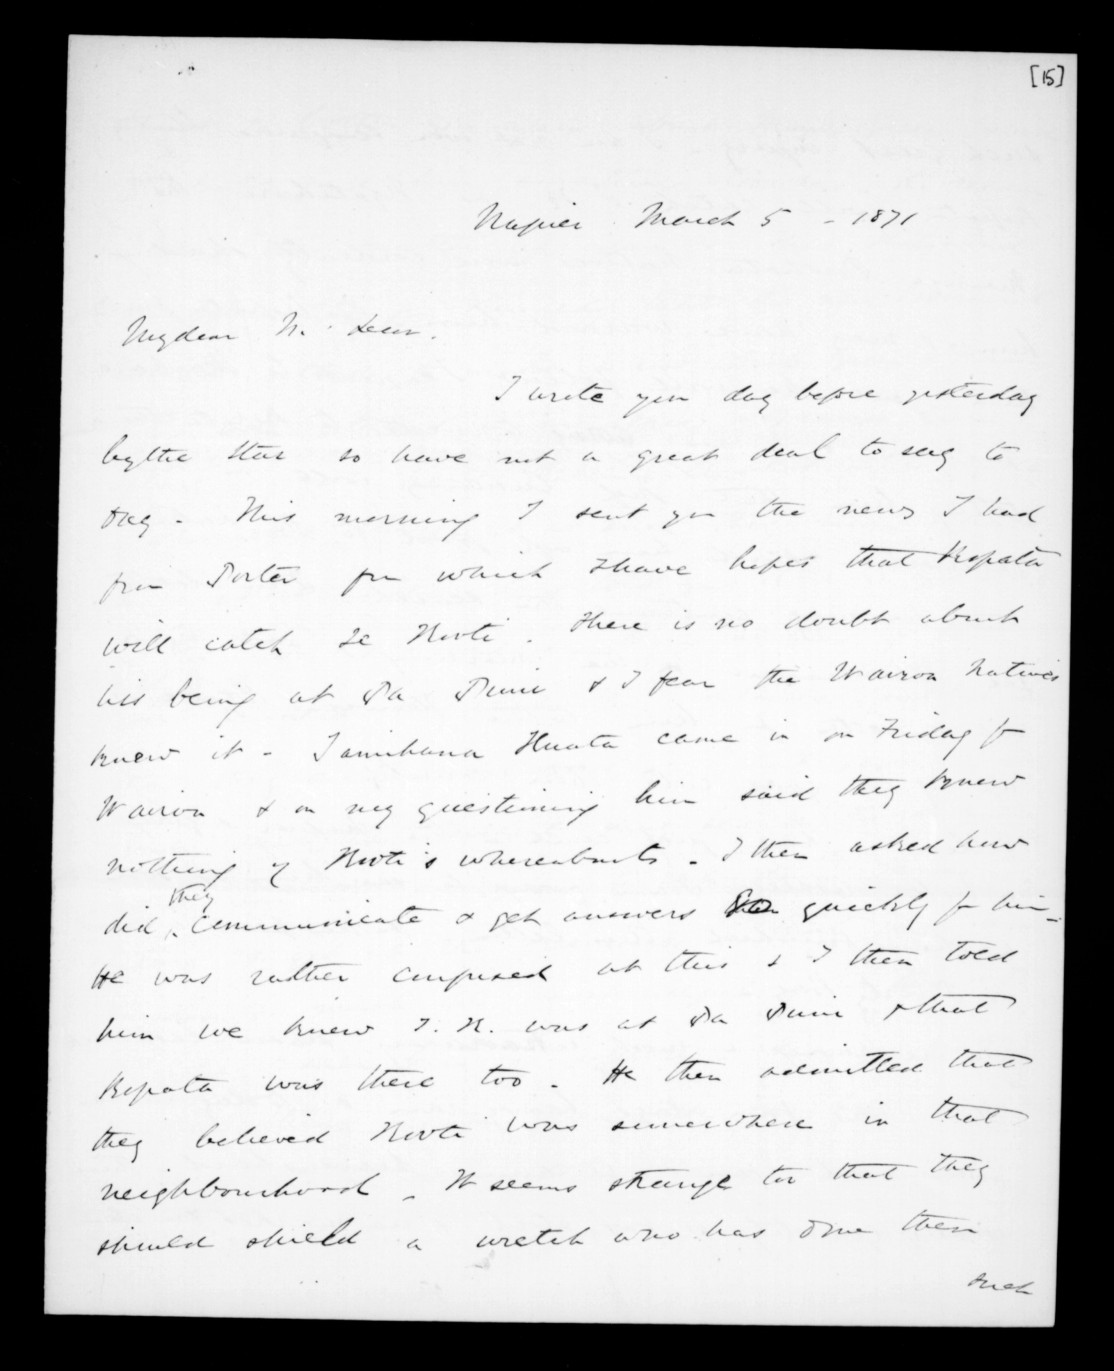 [15]
Napier March 5 - 1871
My dear McLean.
I wrote you day before yesterday
by the Star so have not a great deal to say to
day. This morning I sent you the news I had
from Porter from which I have hopes that Ropata
will catch Te Kooti. There is no doubt about
his being at Pa Puni & I fear the Wairoa Natives
knew it - Tamihana Huata came in on Friday fr
Wairoa & on my questioning him said they knew
nothing of Kooti's whereabouts. I then asked how
did they communicate & get answers so quickly fr him -
He was rather confused at this & I then told
him we knew T. K. was at Pa Puni & that
Ropata was there too. He then admitted that
they believed Kooti was somewhere in that
neighbourhood. It seems strange too that they
should shield a wretch who has done them
such